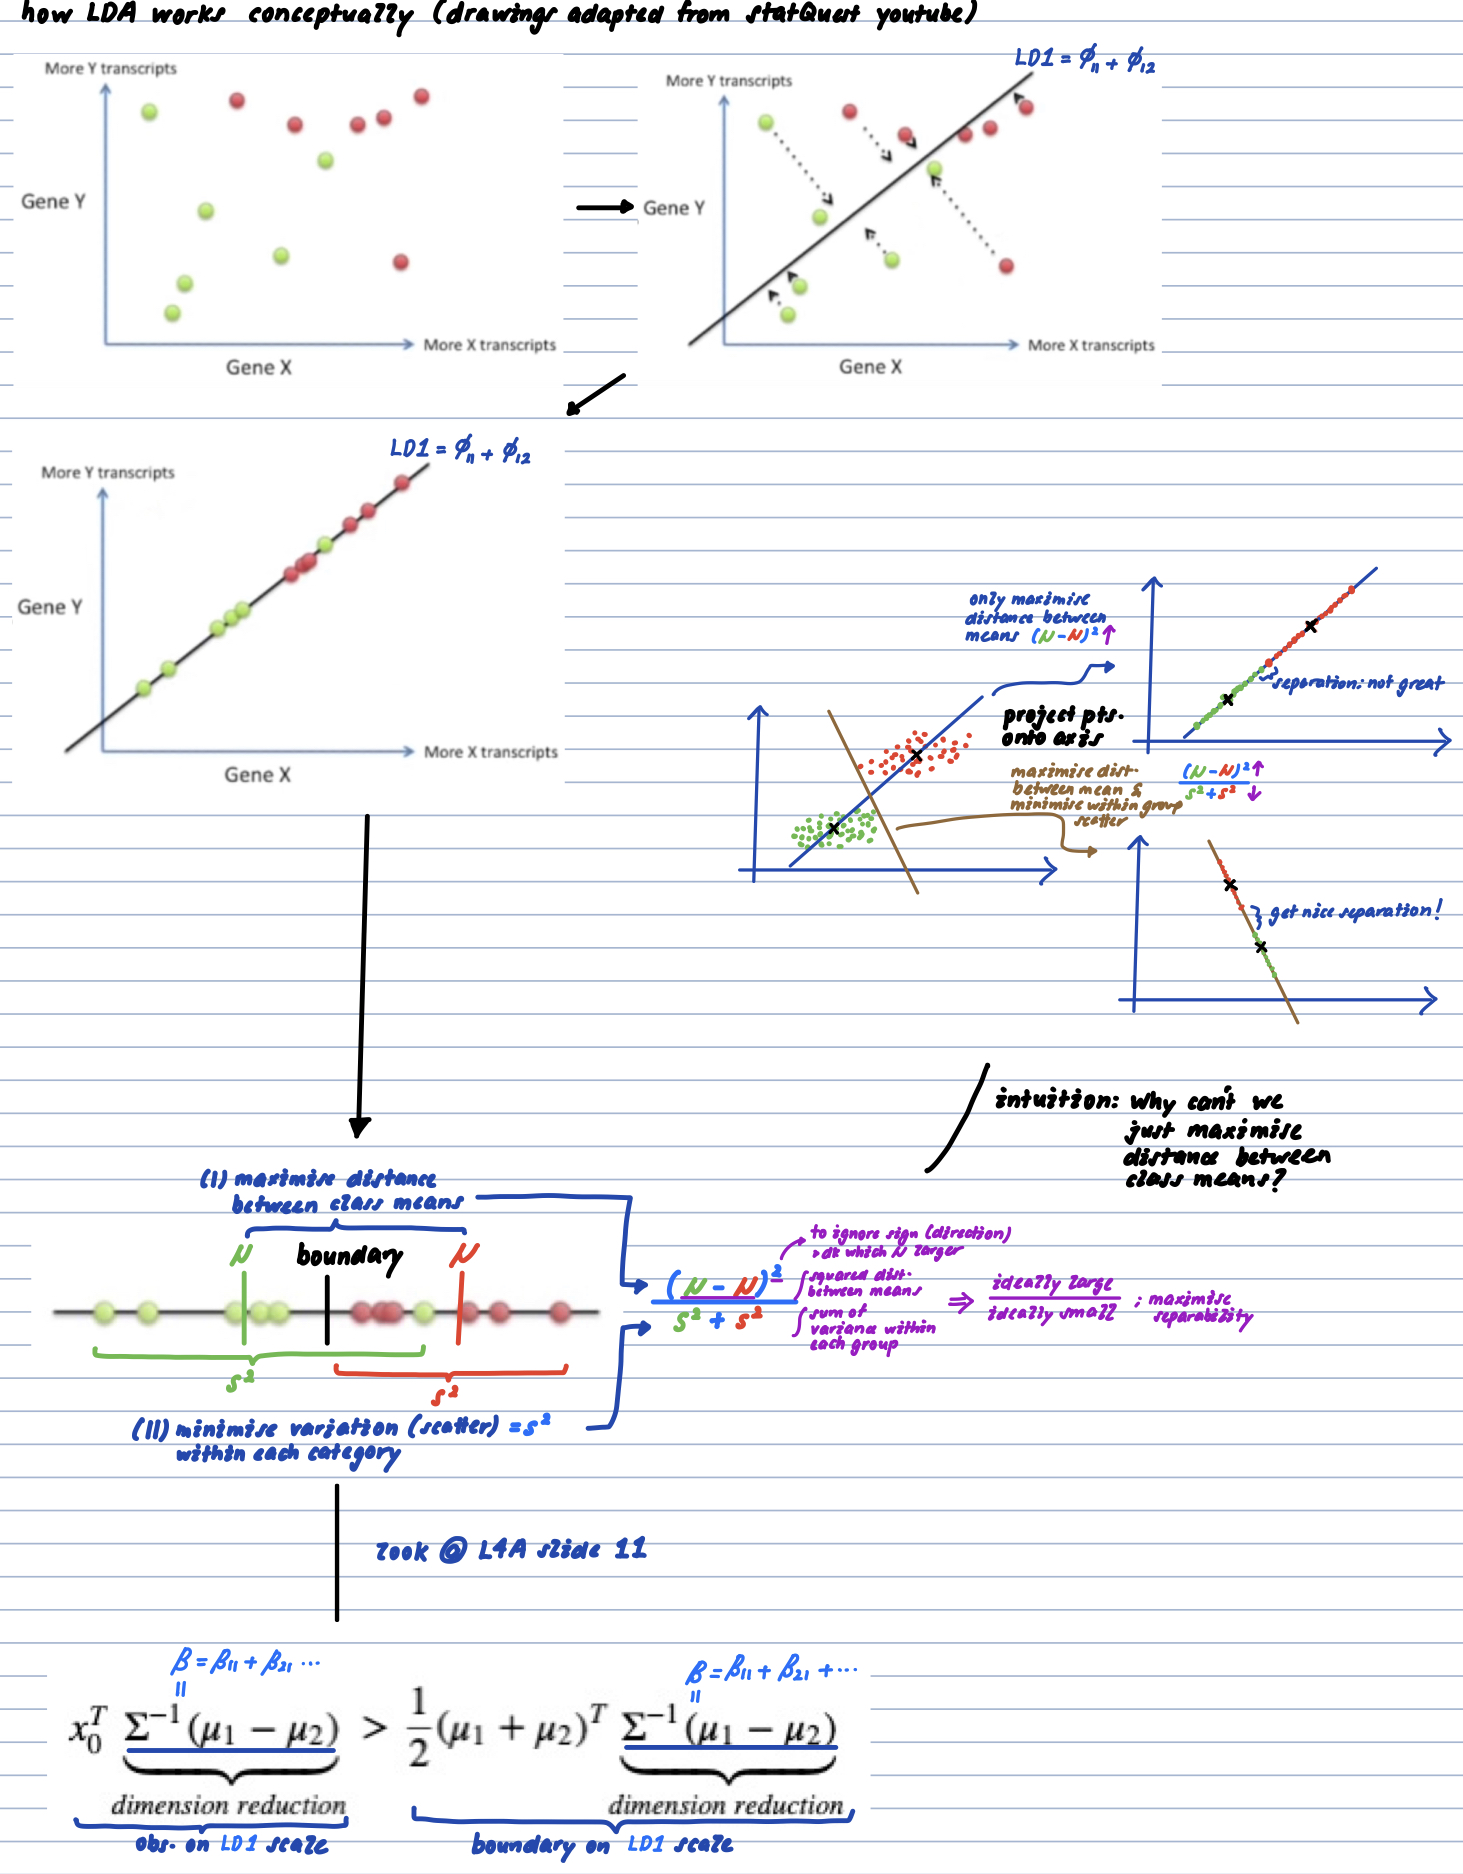 how LDA works conceptually (drawings adapted from statQuest youtube)
More Y transcripts
Gene Y
More X transcripts
Gene X
LD1 = ϕ₁₁ + ϕ₁₂
More Y transcripts
Gene Y
More X transcripts
Gene X
LD1 = ϕ₁₁ + ϕ₁₂
More Y transcripts
Gene Y
More X transcripts
Gene X
only maximise
distance between
means (μ-μ)²↑
separation: not great
project pts.
onto axis
maximise dist.
between mean &
minimise within group
scatter
(μ-μ)²↑
s²+s²↓
get nice separation!
intuition: why can't we
just maximise
distance between
class means?
(I) maximise distance
between class means
μ boundary μ
s²
s²
(II) minimise variation (scatter) = s²
within each category
(μ - μ)²
s² + s²
to ignore sign (direction)
> dk which μ larger
squared dist.
between means
sum of
variance within
each group
⇒ ideally large
ideally small
; maximise
separability
look @ L4A slide 11
β = β₁₁ + β₂₁ ...
β = β₁₁ + β₂₁ + ...
x₀ᵀ Σ⁻¹(μ₁ − μ₂) > 1/2(μ₁ + μ₂)ᵀ Σ⁻¹(μ₁ − μ₂)
dimension reduction
dimension reduction
obs. on LD1 scale
boundary on LD1 scale